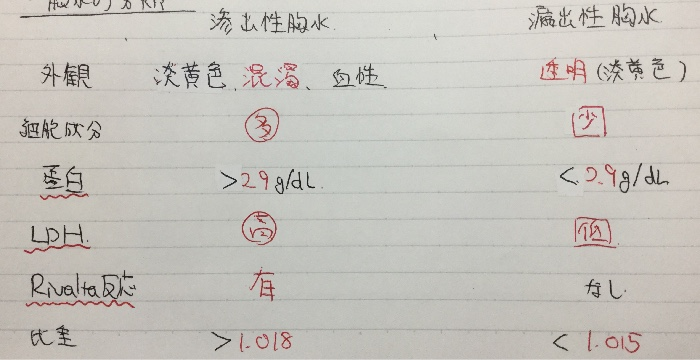 胸水の分類
滲出性胸水 漏出性胸水
外観 淡黄色、混濁、血性 透明(淡黄色)
細胞成分 多 少
蛋白 >2.9g/dL <2.9g/dL
LDH 高 低
Rivalta反応 有 なし
比重 >1.018 <1.015